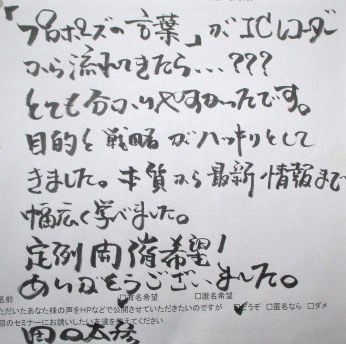 「プロポーズの言葉」がICレコーダー
から流れてきたら…???
とても分かりやすかったです。
目的と戦略がハッキリとして
きました。本質から最新情報まで
幅広く学べました。
定例開催希望!
ありがとうございました。
名前 □有名希望 □匿名希望
ただいたあなた様の声をHPなどで公開させていただきたいのですが どうぞ □匿名なら □ダメ
回のセミナーにお誘いしたい友達を教えてください